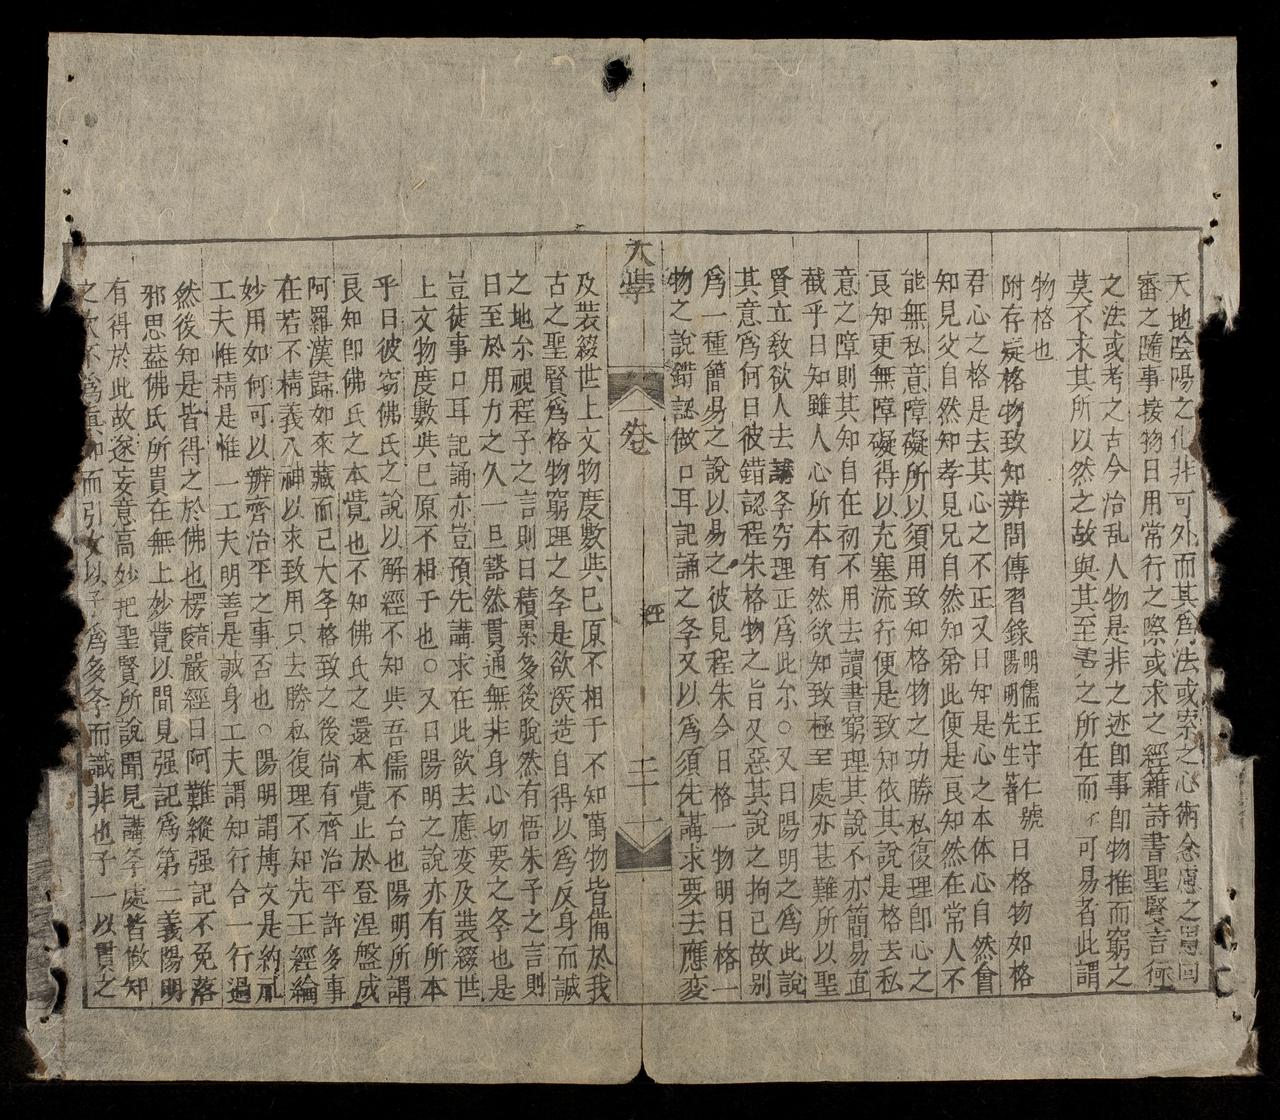 天地陰陽之化非可外而其爲法或索之心術念慮之間回
審之隨事接物日用常行之際或求之經籍詩書聖賢言行
之法或考之古今治乱人物是非之迹即事即物推而窮之
莫不求其所以然之故與其至善之所在而可易者此謂
物格也
附存疑格物致知辨問傳習錄明儒王守仁號陽明先生著日格物如格
君心之格是去其心之不正又曰知是心之本体心自然會
知見父自然知孝見兄自然知弟此便是良知然在常人不
能無私意障礙所以須用致知格物之功勝私復理即心之
良知更無障礙得以充塞流行便是致知依其說是格去私
意之障則其知自在初不用去讀書窮理其說不亦簡易直
截乎曰知雖人心所本有然欲知致極至處亦甚難所以聖
賢立敎欲人去講斈穷理正爲此尒○又曰陽明之爲此說
其意爲何日彼錯認程朱格物之旨又惡其說之拘已故别
爲一種簡易之說以易之彼見程朱今日格一物明日格一
物之說錯認做口耳記誦之斈又以爲須先講求要去應変
大學
一卷
經
二十一
及裝綴世上文物度數与已原不相于不知萬物皆備於我
古之聖賢爲格物窮理之斈是欲深造自得以爲反身而誠
之地尒視程子之言則曰積累多後脫然有悟朱子之言則
曰至於用力之久一旦豁然貫通無非身心切要之斈也是
豈徒事口耳記誦亦豈預先講求在此欲去應変及裝綴世
上文物度數与已原不相于也○又曰陽明之說亦有所本
乎曰彼窃佛氏之說以解經不知与吾儒不合也陽明所謂
良知卽佛氏之本覺也不知佛氏之還本覺止於登涅盤成
阿羅漢歸如來藏而已大斈格致之後尙有齊治平許多事
在若不精義入神以求致用只去勝私復理不知先王經綸
妙用如何可以辨齊治平之事否也○陽明謂博文是約礼
工夫惟精是惟一工夫明善是誠身工夫謂知行合一行過
然後知是皆得之於佛也楞嚴經曰阿難縱强記不免落
邪思益佛氏所貴在無上妙覺以聞見强記爲第二義陽明
有得於此故遂妄意高妙把聖賢所說聞見講斈處皆做知
之次不爲眞知而引女以予爲多斈而識非也予一以貫之